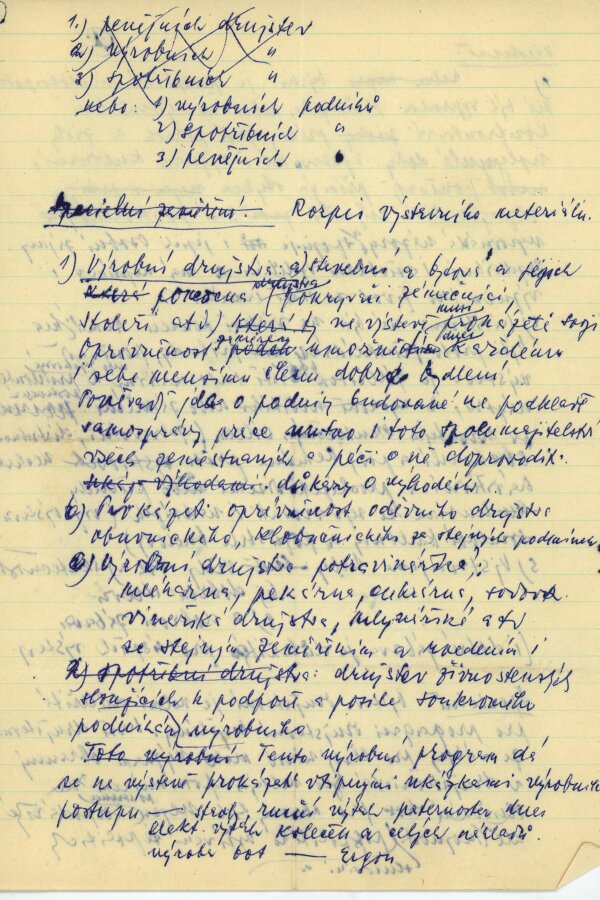 1.) peněžních družstev
2) výrobních "
3) spotřebních "
nebo: 1) výrobních podniků
2) spotřebních "
3) peněžních "
Specielní zaměření. Rozpis výstavního materiálu.
1) Výrobní družstva a) stavební a bytová a jejich
která družstva pokrývači zámečníci,
stolaři atd) která na výstavě musí prokázati svoji
oprávněnost umožniti dnes každému
i sebe menšímu členu dobré bydlení.
jde o podniky budované na podkladě
samosprávy práce nutno i toto spolumajitelství
všech zaměstnaných a péči o ně doprovoditi
důkazy o výhodách
b) Prokázati oprávněnost oděvního družstva
obuvnického, kloboučnického za stejných podmínek
c) Výrobní družstva potravinářská:
mlékárna, pekárna, cukrárna,
vinařská družstva, mlynářské atd
se stejným zaměřením a uvedením i
2) spotřební družstva: družstev živnostenských
sloužících k podpoře a posile soukromého
podnikání výrobního
Toto výrobní Tento výrobní program dá
se na výstavě prokázati vtipnými ukázkami výrobního
postupu — ruční výtah paternoster dnes
elekt. výtah koleček a celých nákladů.
výroba bot — Ergon